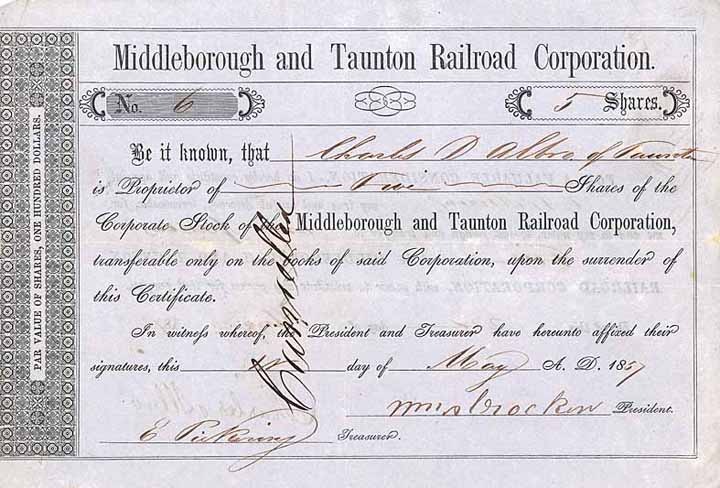 Middleborough and Taunton Railroad Corporation.
No. 6 5 Shares.
Be it known, that Charles D Albro of Taunton
is Proprietor of Five Shares of the
Corporate Stock of the Middleborough and Taunton Railroad Corporation,
transferable only on the books of said Corporation, upon the surrender of
this Certificate.
In witness whereof, the President and Treasurer have hereunto affixed their
signatures, this day of May A. D. 1857
Wm A Crocker President.
E Pickering Treasurer.
Cancelled
PAR VALUE OF SHARES, ONE HUNDRED DOLLARS.